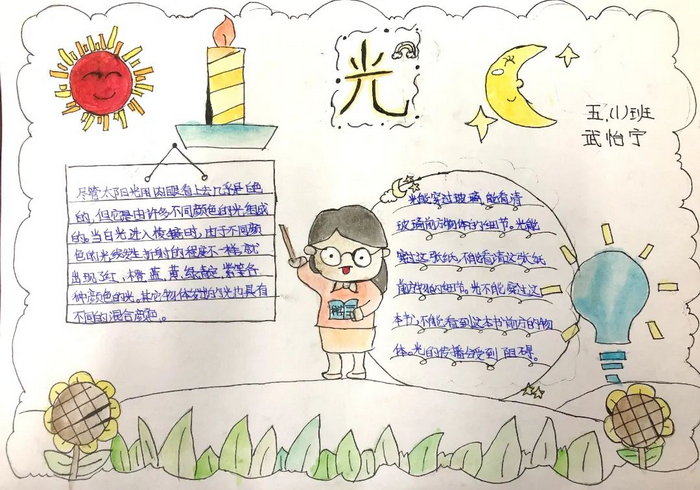 光
五.(1)班
武怡宁
尽管太阳光用肉眼看上去几乎是白色
的,但它是由许多不同颜色的光组成
的。当白光进入棱镜时,由于不同颜
色的光线受到折射的程度不一样,就
出现了红、橙、蓝、黄、绿、靛、紫等各
种颜色的光。其它物体发出的光也具有
不同的混合颜色。
光能穿过玻璃,能看清
玻璃前方物体的细节。光能
穿过这张纸,不能看清这张纸
前方物体的细节。光不能穿过这
本书,不能看到这本书前方的物
体。光的传播会受到阻碍。